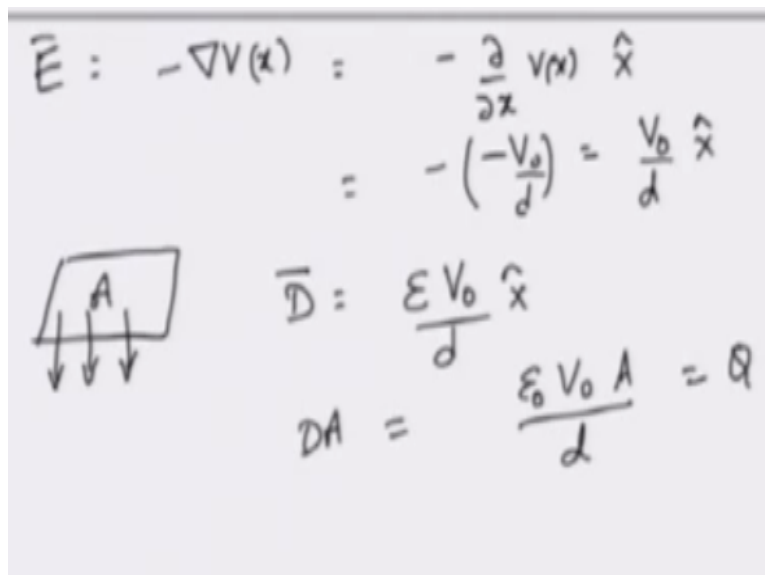 E̅ : -∇V(x) : - ∂/∂x V(x) x̂
= -(-V₀/d) = V₀/d x̂
A
D̅ : εV₀/d x̂
DA = ε₀V₀A/d = Q